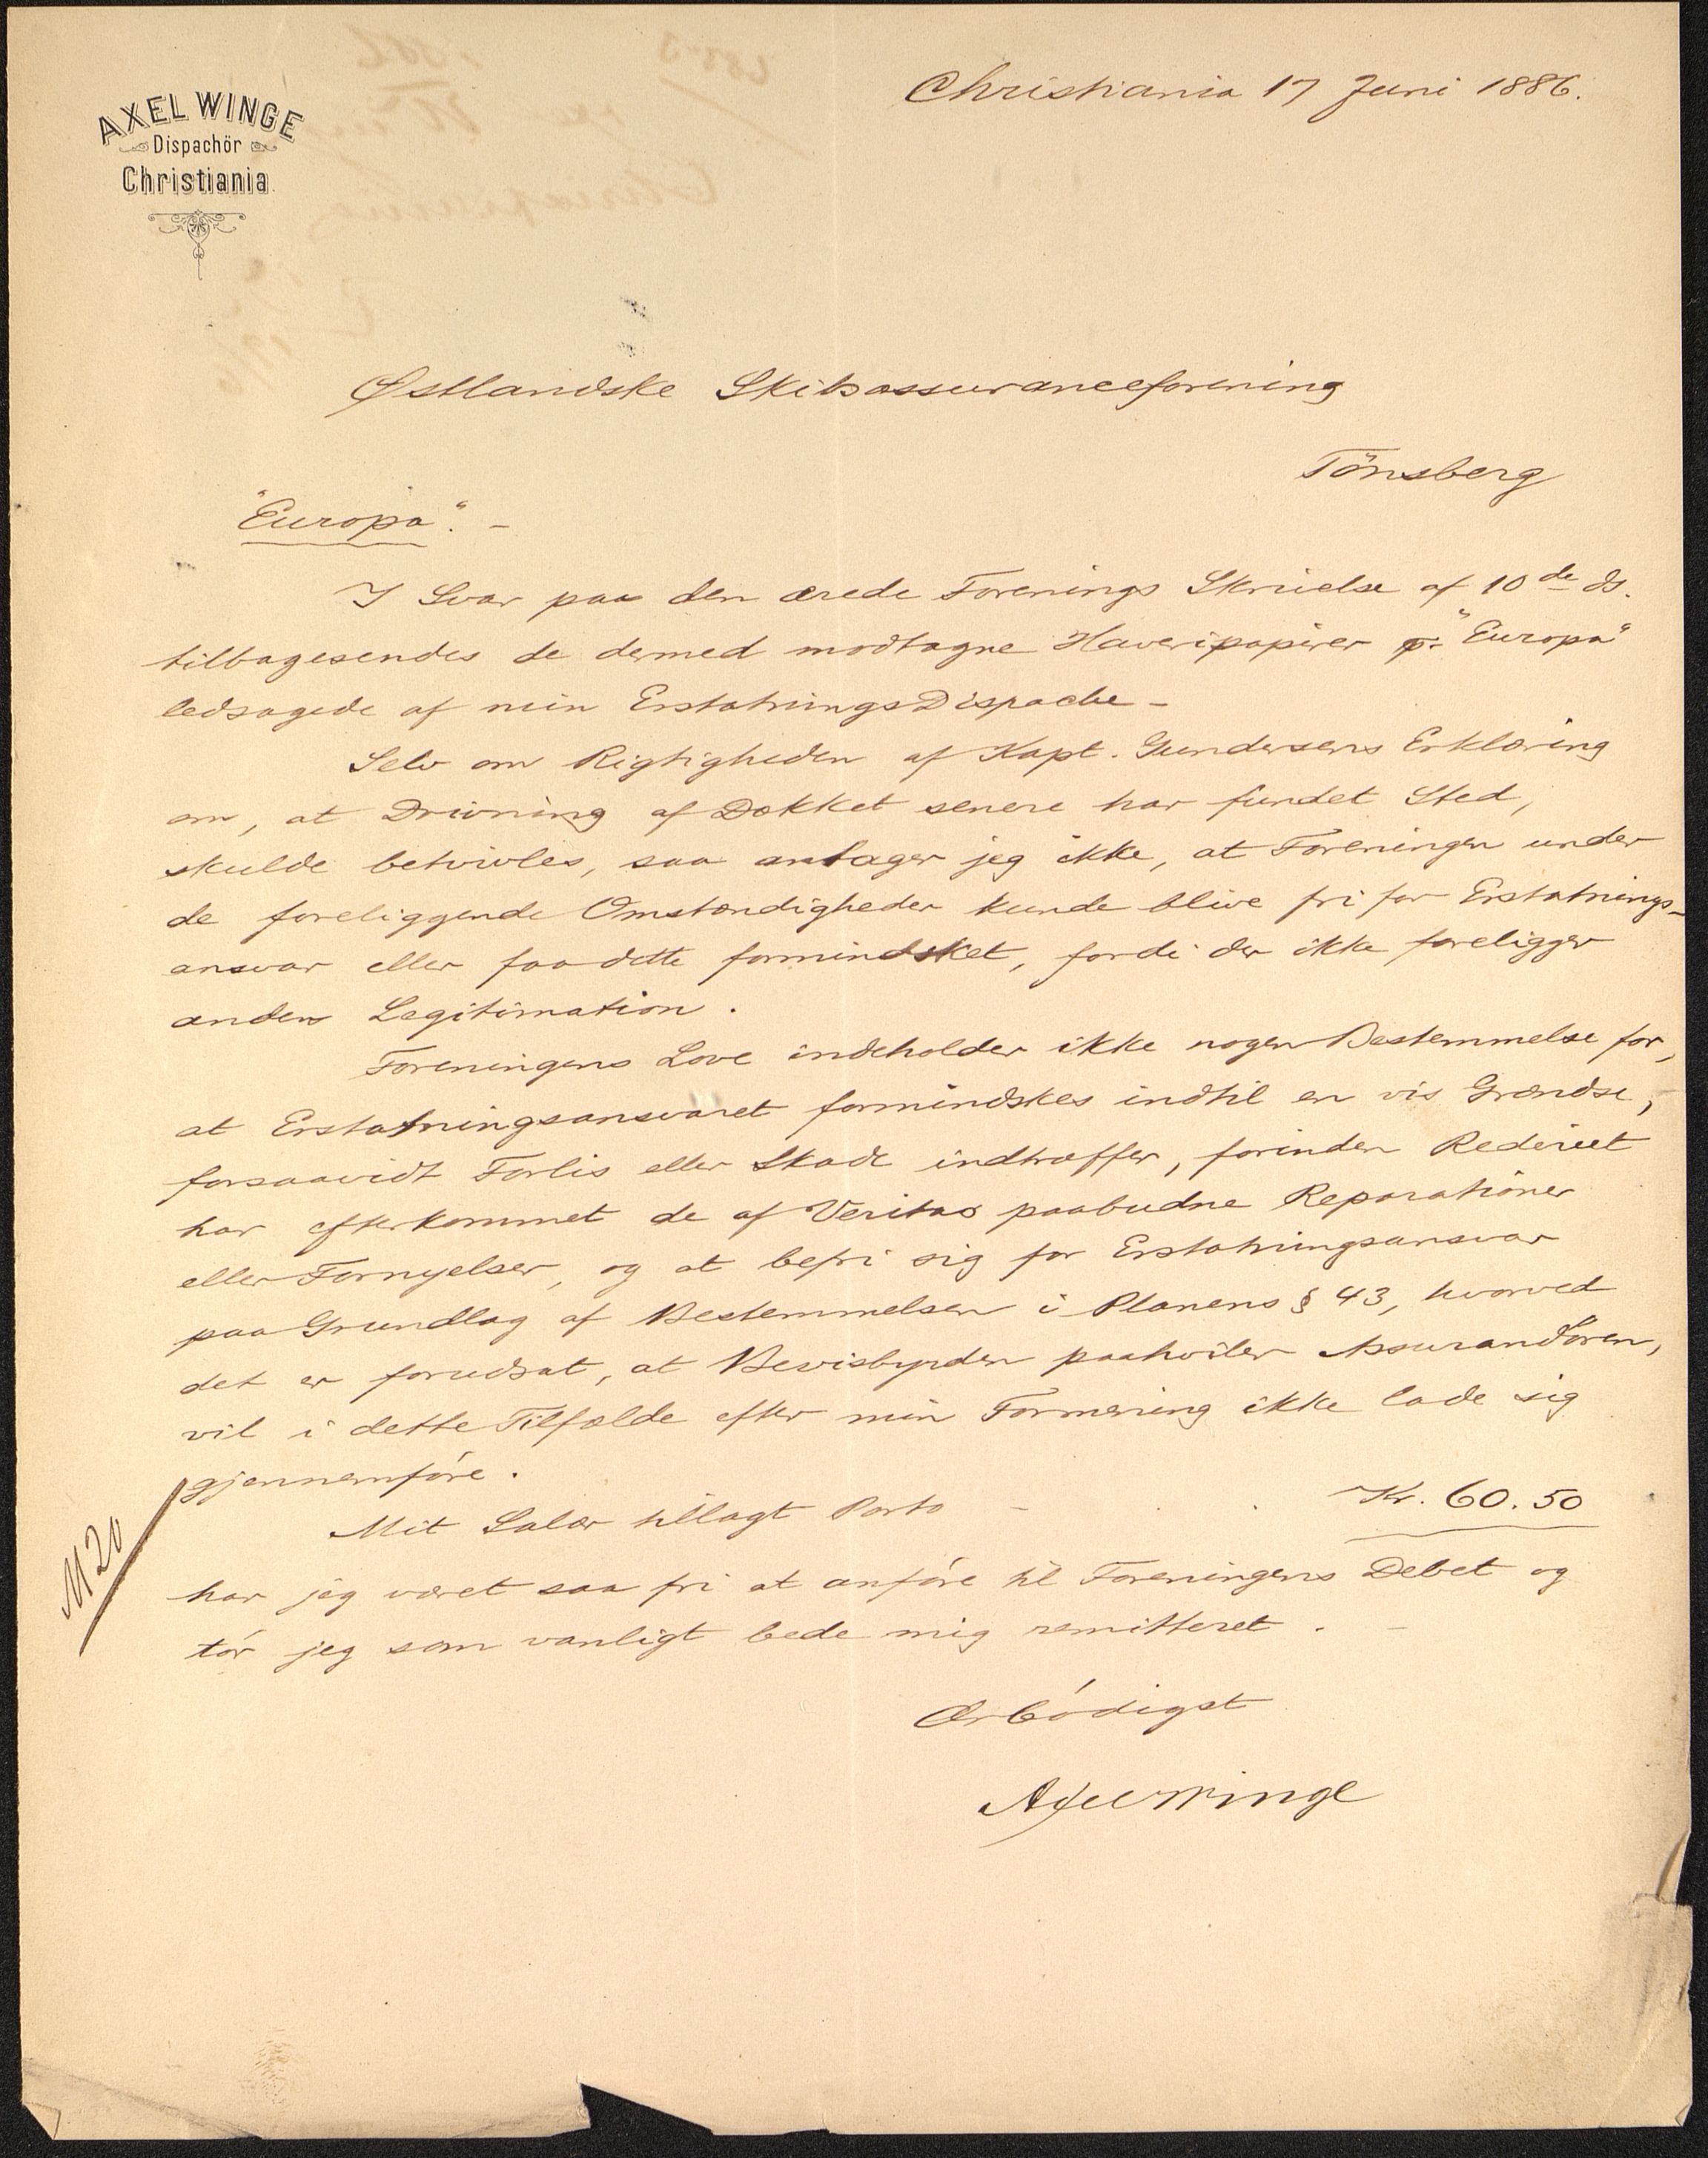 AXEL WINGE
Dispachör
Christiania
Christiania 17 Juni 1886.
Østlandske Skibsassuranceforening
Tönsberg
"Europa". -
I Svar paa den ærede Forenings Skrivelse af 10de ds.
tilbagesendes de dermed modtagne Havaripapirer pr "Europa"
ledsagede af min ErstatningsDispache -
Selv om Rigtigheden af Kapt. Gundersens Erklæring
om, at Drivning af Dækket senere har fundet Sted,
skulde betvivles, saa antager jeg ikke, at Foreningen under
de foreliggende Omstændigheder kunde blive fri for Erstatnings-
ansvar eller faa dette formindsket, fordi der ikke foreligger
anden Legitimation.
Foreningens Love indeholder ikke nogen Bestemmelse for,
at Erstatningsansvaret formindskes indtil en vis Grændse,
forsaavidt Forlis eller Skade indtræffer, forinden Rederiet
har efterkommet de af Veritas paabudne Reparationer
eller Fornyelser, og at befri sig for Erstatningsansvar
paa Grundlag af Bestemmelsen i Planens § 43, hvorved
det er forudsat, at Bevisbyrden paahviler Assurandören,
vil i dette Tilfælde efter min Formening ikke lade sig
gjennemföre.
Mit Salær tillagt Porto - Kr. 60.50
har jeg været saa fri at anföre til Foreningens Debet og
tör jeg som vanligt bede mig remitteret. -
Ærbödigst
Axel Winge
M 20